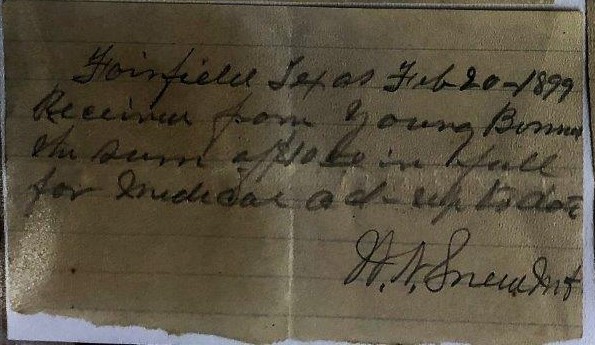 Fairfield Texas Feb 20-1899
Received from Young Bonner
the sum of $10.00 in full
for Medical acct up to date